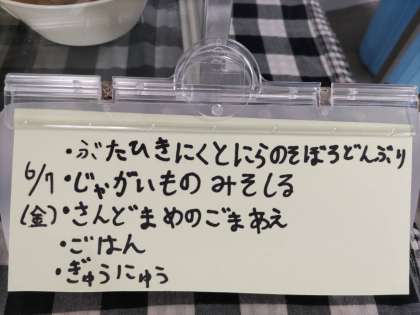 ・ぶたひきにくとにらのそぼろどんぶり
6/7・じゃがいものみそしる
(金)・さんどまめのごまあえ
・ごはん
・ぎゅうにゅう